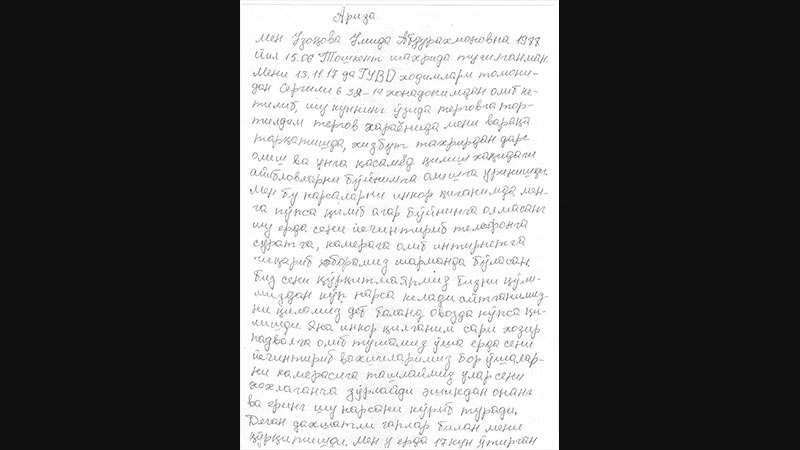 Ариза.
Мен Узоқова Умида Абдурахмоновна 1988
йил 15.06 Тошкент шахрида туғилганман.
Мени 13.11.17 да ГУВD ходимлари томони-
дан Сергили 6 39-14 хонадонимдан олиб ке-
тилиб, шу куннинг ўзида терговга тор-
тилдим тергов жараёнида мени варақа
тарқатишда, хизбут тахрирдан дарс
олиш ва унга қасамёд қилиш хақидаги
айбловларни бўйнимга олишга уринишди.
Мен бу нарсаларни инкор қилганимда мен-
га пўписа қилиб агар бўйнинга олмасанг
шу ерда сени йечинтириб телефонга
суратга, камерага олиб интирнетга
чиқариб юборамиз шарманда бўласан
биз сени қўрқитмаяпмиз бизни қўли-
миздан кўп нарса келади айтганимиз-
ни қиламиз деб баланд овозда пўписа қи-
лишди. Яна инкор қилганим сари хозир
падвалга олиб тушамиз ўша ерда сени
йечинтириб вахшиларимиз бор ўшалар-
ни камерасига ташлаймиз улар сени
хохлаганча зўрлайди эшикдан онанг
ва еринг шу нарсани кўриб туради.
Деган дахшатли гаплар билан мени
қўрқитишди. Мен у ерда 17 кун ўтирган